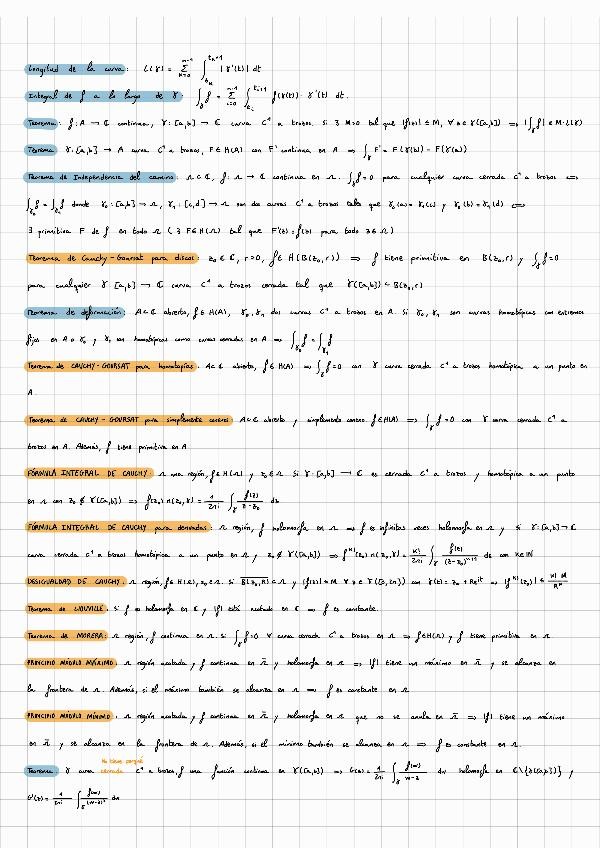 Longitud de la curva: L(γ) = Σ_{k=0}^{n-1} ∫_{t_k}^{t_{k+1}} |γ'(t)| dt
Integral de f a lo largo de γ: ∫_γ f = Σ_{i=0}^{n-1} ∫_{t_i}^{t_{i+1}} f(γ(t)) · γ'(t) dt.
Teorema: f: A → ℂ continua, γ: [a,b] → ℂ curva C¹ a trozos. Si ∃ M>0 tal que |f(z)| ≤ M, ∀ z ∈ γ([a,b]) ⟹ |∫_γ f| ≤ M·L(γ)
Teorema γ: [a,b] → A curva C¹ a trozos, F ∈ H(A) con F' continua en A ⟹ ∫_γ F' = F(γ(b)) - F(γ(a))
Teorema de Independencia del camino: Ω ⊂ ℂ, f: Ω → ℂ continua en Ω. ∫_γ f = 0 para cualquier curva cerrada C¹ a trozos ⟺
∫_{γ₀} f = ∫_{γ₁} f donde γ₀: [a,b] → Ω, γ₁: [c,d] → Ω son dos curvas C¹ a trozos tales que γ₀(a) = γ₁(c) y γ₀(b) = γ₁(d) ⟺
∃ primitiva F de f en todo Ω (∃ F ∈ H(Ω) tal que F'(z) = f(z) para todo z ∈ Ω)
Teorema de Cauchy-Goursat para discos: z₀ ∈ ℂ, r>0, f ∈ H(B(z₀,r)) ⟹ f tiene primitiva en B(z₀,r) y ∫_γ f = 0
para cualquier γ [a,b] → ℂ curva C¹ a trozos cerrada tal que γ([a,b]) ⊂ B(z₀,r)
Teorema de deformación: A ⊂ ℂ abierto, f ∈ H(A), γ₀, γ₁ dos curvas C¹ a trozos en A. Si γ₀, γ₁ son curvas homotópicas con extremos
fijos en A o γ₀ y γ₁ son homotópicas como curvas cerradas en A ⟹ ∫_{γ₀} f = ∫_{γ₁} f
Teorema de CAUCHY-GOURSAT para homotopías. A ⊂ ℂ abierto, f ∈ H(A) ⟹ ∫_γ f = 0 con γ curva cerrada C¹ a trozos homotópica a un punto en
A.
Teorema de CAUCHY-GOURSAT para simplemente conexos A ⊂ ℂ abierto y simplemente conexo f ∈ H(A) ⟹ ∫_γ f = 0 con γ curva cerrada C¹ a
trozos en A. Además, f tiene primitiva en A
FÓRMULA INTEGRAL DE CAUCHY. Ω una región, f ∈ H(Ω) y z₀ ∈ Ω Si γ: [a,b] → ℂ es cerrada C¹ a trozos y homotópica a un punto
en Ω con z₀ ∉ γ([a,b]) ⟹ f(z₀) n(z₀,γ) = 1/2πi ∫_γ f(z)/(z-z₀) dz
FÓRMULA INTEGRAL DE CAUCHY para derivadas: Ω región, f holomorfa en Ω ⟹ f es infinitas veces holomorfa en Ω y si γ: [a,b] → ℂ
curva cerrada C¹ a trozos homotópica a un punto en Ω y z₀ ∉ γ([a,b]) ⟹ f^{k)}(z₀) n(z₀,γ) = k!/2πi ∫_γ f(z)/(z-z₀)^{k+1} dz con k ∈ ℕ
DESIGUALDAD DE CAUCHY. Ω región, f ∈ H(Ω), z₀ ∈ Ω. Si B(z₀,R) ⊂ Ω y |f(z)| ≤ M ∀ z ∈ γ([0,2π]) con γ(t) = z₀ + Re^{it} ⟹ |f^{k)}(z₀)| ≤ k! M/R^k
Teorema de LIOUVILLE. Si f es holomorfa en ℂ y |f| está acotada en ℂ ⟹ f es constante.
Teorema de MORERA: Ω región, f continua en Ω. Si ∫_γ f = 0 ∀ curva cerrada C¹ a trozos en Ω ⟹ f ∈ H(Ω) y f tiene primitiva en Ω
PRINCIPIO MÓDULO MÁXIMO. Ω región acotada y f continua en Ω̄ y holomorfa en Ω ⟹ |f| tiene un máximo en Ω̄ y se alcanza en
la frontera de Ω. Además, si el máximo también se alcanza en Ω ⟹ f es constante en Ω
PRINCIPIO MÓDULO MÍNIMO. Ω región acotada y f continua en Ω̄ y holomorfa en Ω que no se anula en Ω̄ ⟹ |f| tiene un mínimo
en Ω̄ y se alcanza en la frontera de Ω. Además, si el mínimo también se alcanza en Ω ⟹ f es constante en Ω.
No tiene porqué
Teorema γ curva cerrada C¹ a trozos, f una función continua en γ([a,b]) ⟹ G(z) = 1/2πi ∫_γ f(w)/(w-z) dw holomorfa en ℂ\{γ([a,b])} y
G'(z) = 1/2πi ∫_γ f(w)/(w-z)² dw